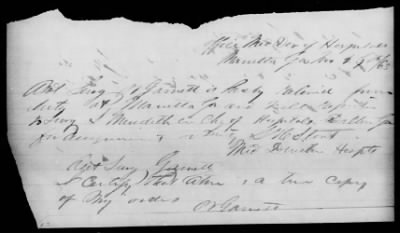 Office Med Dir of Hospitals
Marietta Ga Nov
Asst Surg Garrott is hereby relieved from
duty at Marietta Ga and will report
to Surg S Meredith in Chg of Hospitals Dalton Ga
for assignment to duty S H Stout
Med Director Hospts
Asst Surg Garrott
I Certify that above is a true copy
of My orders
Garrott